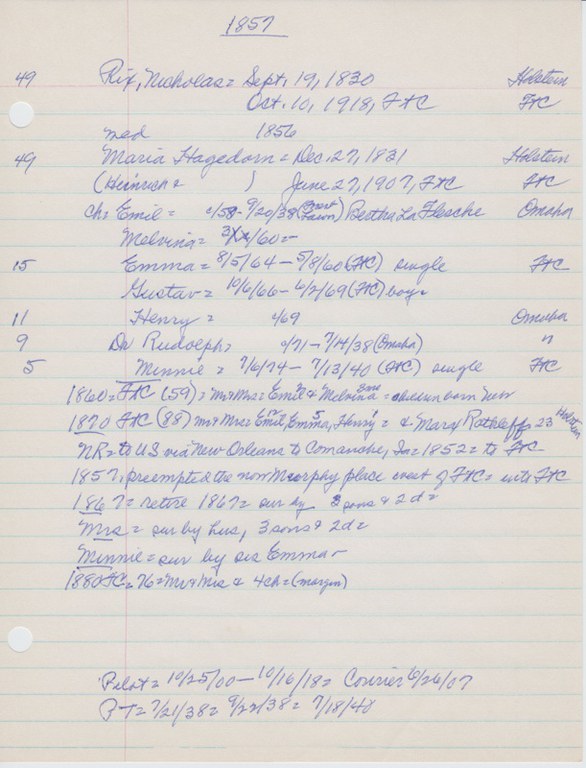 1857
49 Rix, Nicholas = Sept. 19, 1830 Holstein
Oct. 10, 1918, FtC FtC
med 1856
49 Maria Hagedorn = Dec. 27, 1831 Holstein
(Heinrich & ) June 27, 1907, FtC FtC
ch = Emil = /58 - 9/20/38 (Forest Lawn) Bertha La Flesche Omaha
Melvina = /60 =
15 Emma = 8/5/64 - 5/8/60 (FtC) single FtC
Gustav = 10/6/66 - 6/2/69 (FtC) boy =
11 Henry = /69 Omaha
9 Dr Rudolph = /71 - 7/14/38 (Omaha) "
5 Minnie = 7/6/74 - 7/13/40 (FtC) single FtC
1860 = FtC (59) = Mr & Mrs = Emil & Melvina = born Nebr
1870 FtC (88) Mr & Mrs = Emil, Emma 5, Henry 1 = & Marx Rathleff 23 Holstein
NR = to US via New Orleans to Comanche, Ia = 1852 = to FtC
1857, preempted the now Murphy place west of FtC = into FtC
1867 = retire 1867 = sur by 3 sons & 2 d =
Mrs = sur by hus, 3 sons & 2d =
Minnie = sur by sis Emma -
1880 FtC = 76 = Mr & Mrs & 4 ch = (margin)
Pilot = 10/25/00 - 10/16/18 = Courier 6/26/07
PT = 7/21/38 = 9/22/38 = 7/18/40